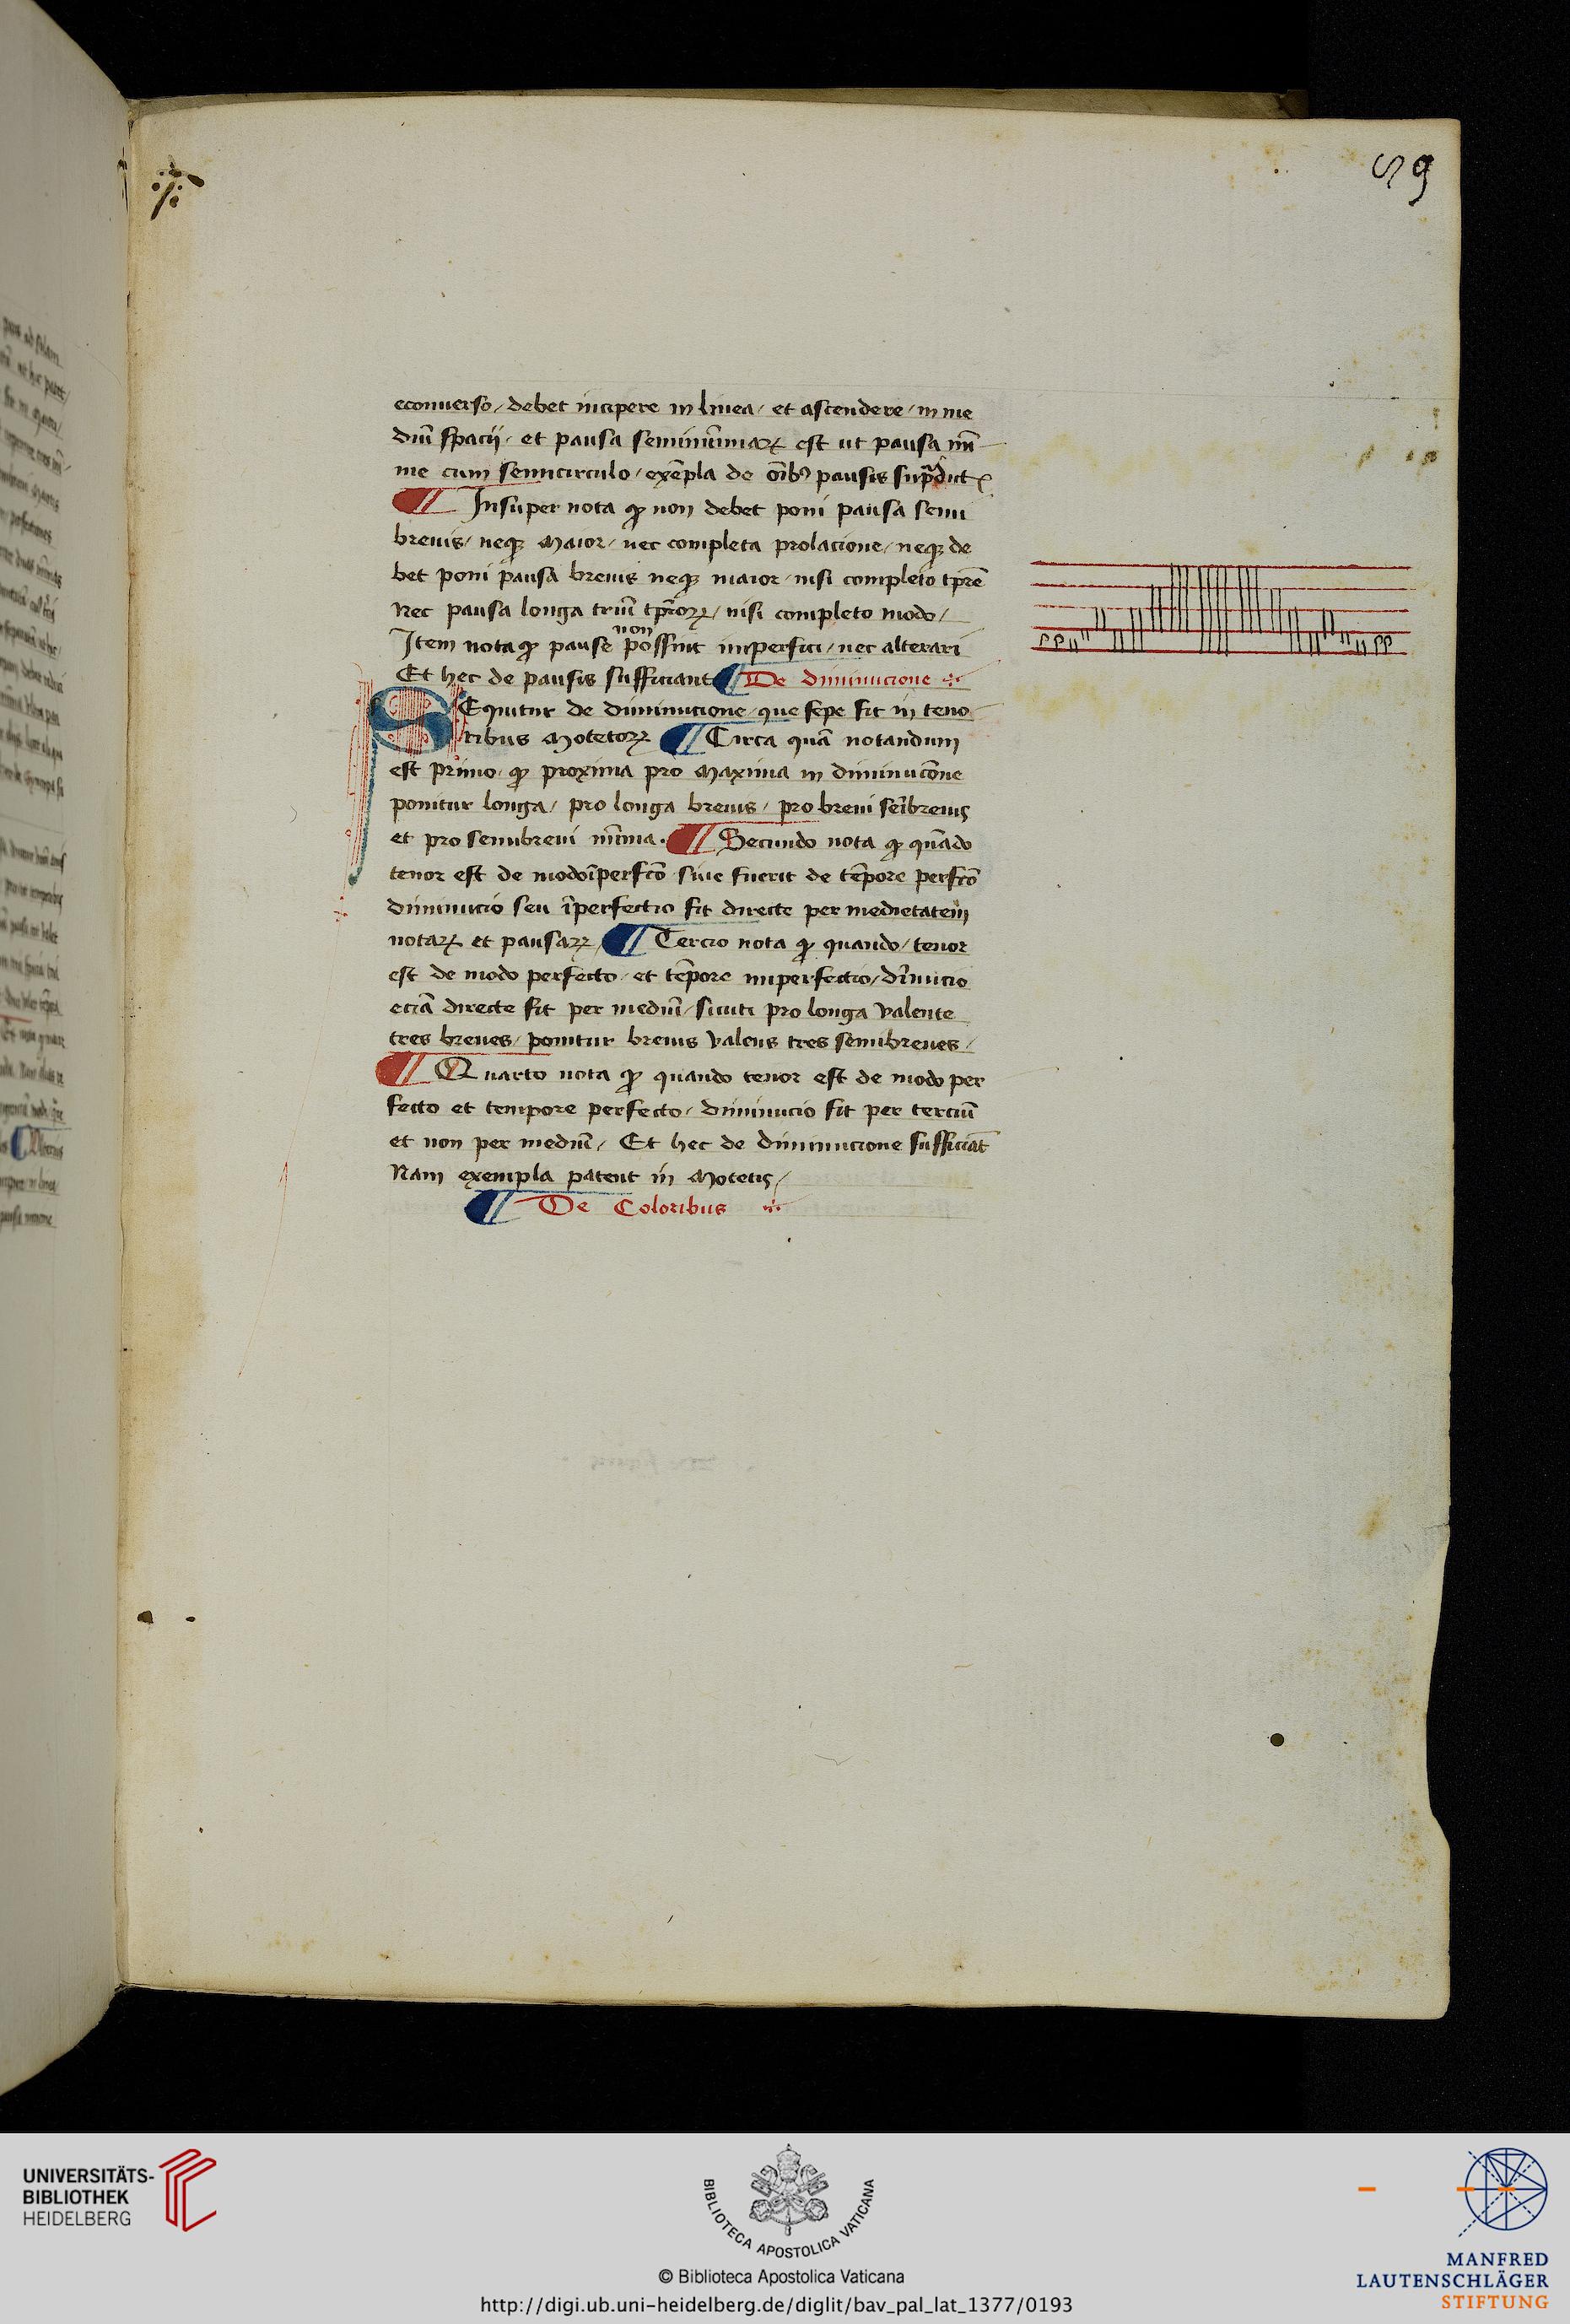 89
econuerso / debet incipere in linea / et ascendere / in me
diũ spacij / et pausa seminĩmarꝝ est ut pausa mĩ
me cum semicirculo / exẽpla de oĩbꝫ pausis supᵃdict
¶ Insuper nota ꝙ non debet poni pausa semi
breuis / neqꝫ maior / nec completa prolacione / neqꝫ de
bet poni pausa breuis neqꝫ maior / nisi completo tp̃re
Nec pausa longa triũ tp̃orꝝ / nisi completo modo /
non
Item nota ꝙ pause possint imperfici / nec alterari
Et hec de pausis sufficiant ¶ De diminucione
SEquitur de diminucione / que sepe fit in teno
ribus Motetorꝝ ¶ Circa quã notandum
est primo / ꝙ proxima pro Maxima in diminucõne
ponitur longa / pro longa breuis / pro breui sem̃breuis
et pro semibreui mĩma . ¶ Secundo nota ꝙ quãdo
tenor est de modo ĩperfcõ siue fuerit de tẽpore perfcõ
diminucio seu ĩperfectio fit directe per medietatem
notarꝝ et pausarꝝ / ¶ Tercio nota ꝙ quando / tenor
est de modo perfecto / et tẽpore imperfectio / dĩnucio
eciã directe fit per mediũ / sicuti pro longa valente
tres breues / ponitur breuis valens tres semibreues /
¶ Quarto nota ꝙ quando tenor est de modo per
fecto et tempore perfecto / diminucio fit per terciũ
et non per mediũ / Et hec de diminucione sufficiãt
Nam exempla patent in Motetis /
¶ De Coloribus
UNIVERSITÄTS-
BIBLIOTHEK
HEIDELBERG
BIBLIOTECA APOSTOLICA VATICANA
© Biblioteca Apostolica Vaticana
http://digi.ub.uni-heidelberg.de/diglit/bav_pal_lat_1377/0193
MANFRED
LAUTENSCHLÄGER
STIFTUNG